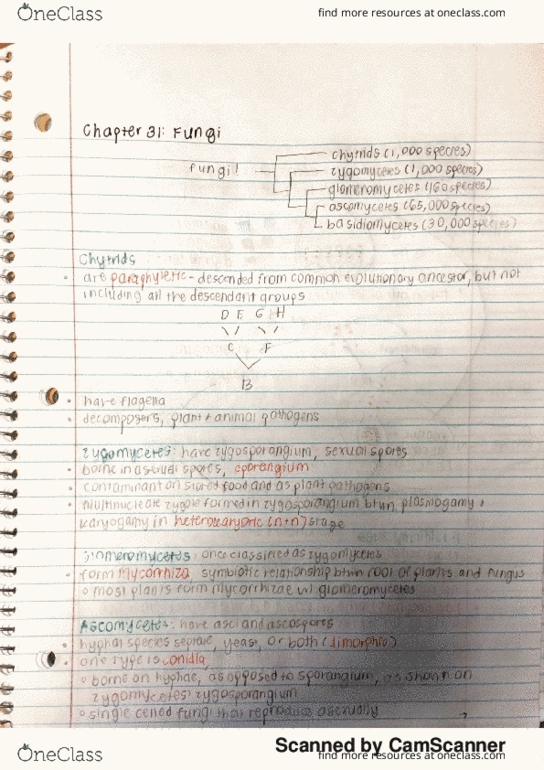 OneClass
find more resources at oneclass.com
Chapter 31: Fungi
fungi!
chytrids (1,000 species)
zygomycetes (1,000 species)
glomeromycetes (160 species)
ascomycetes (65,000 species)
basidiomycetes (30,000 species)
Chytrids
• are paraphyletic - descended from common evolutionary ancestor, but not
including all the descendant groups
D E G H
C F
B
• have flagella
• decomposers, plant + animal pathogens
zygomycetes: have zygosporangium, sexual spores
• borne in asexual spores, sporangium
• contaminant on stored food and as plant pathogens
• Multinucleate zygote formed in zygosporangium btwn plasmogamy +
karyogamy in heterokaryotic (n+n) stage
Glomeromycetes: once classified as zygomycetes
• form mycorrhiza, symbiotic relationship btwn root of plants and fungus
o most plants form mycorrhizae w/ glomeromycetes
Ascomycetes: have asci and ascospores
• hyphal species septate, yeast, or both (dimorphic)
• one type is conidia
o borne on hyphae, as opposed to sporangium, as shown on
zygomycetes' zygosporangium
o single celled fungi that reproduce asexually
Scanned by CamScanner
OneClass
find more resources at oneclass.com